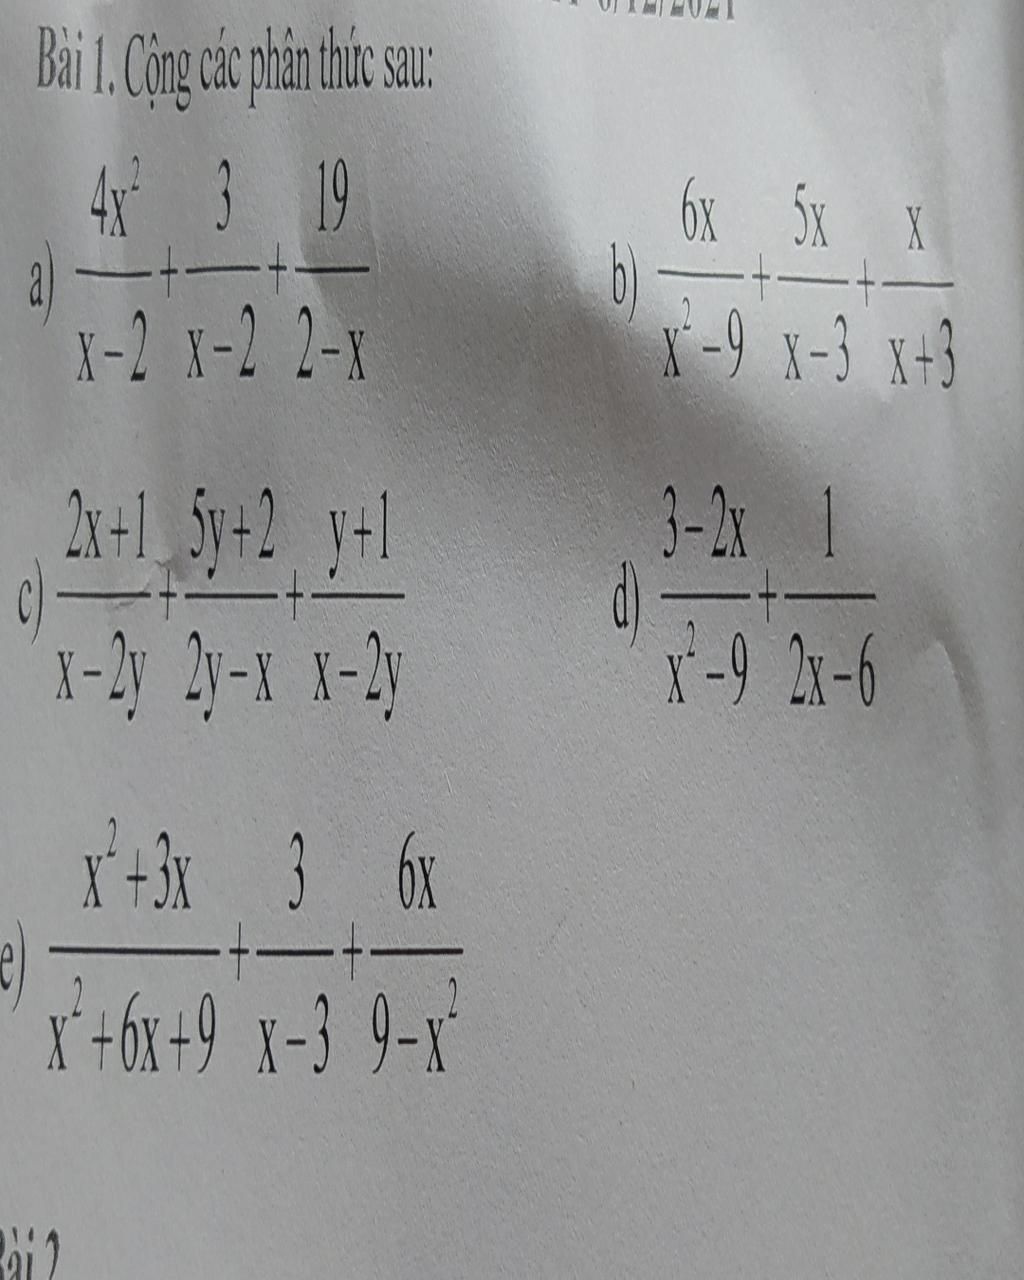 Bài 1. Cộng các phân thức sau:
a) 4x²/(x-2) + 3/(x-2) + 19/(2-x)
b) 6x/(x²-9) + 5x/(x-3) + x/(x+3)
c) (2x+1)/(x-2y) + (5y+2)/(2y-x) + (y+1)/(x-2y)
d) (3-2x)/(x²-9) + 1/(2x-6)
e) (x²+3x)/(x²+6x+9) + 3/(x-3) + 6x/(9-x²)
Bài 2